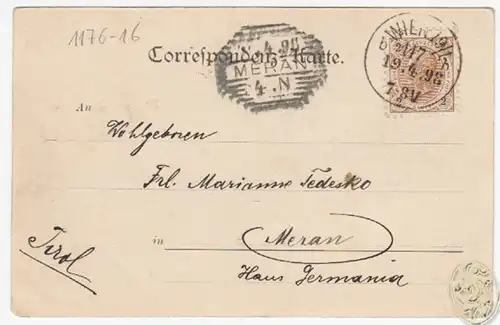 1176-16
Correspondenz-Karte.
4.98
MERAN
4.N
WIEN
19.4.98
An
Wohlgeboren
Frl. Marianne Tedesko
in Meran
Tirol
Haus Germania